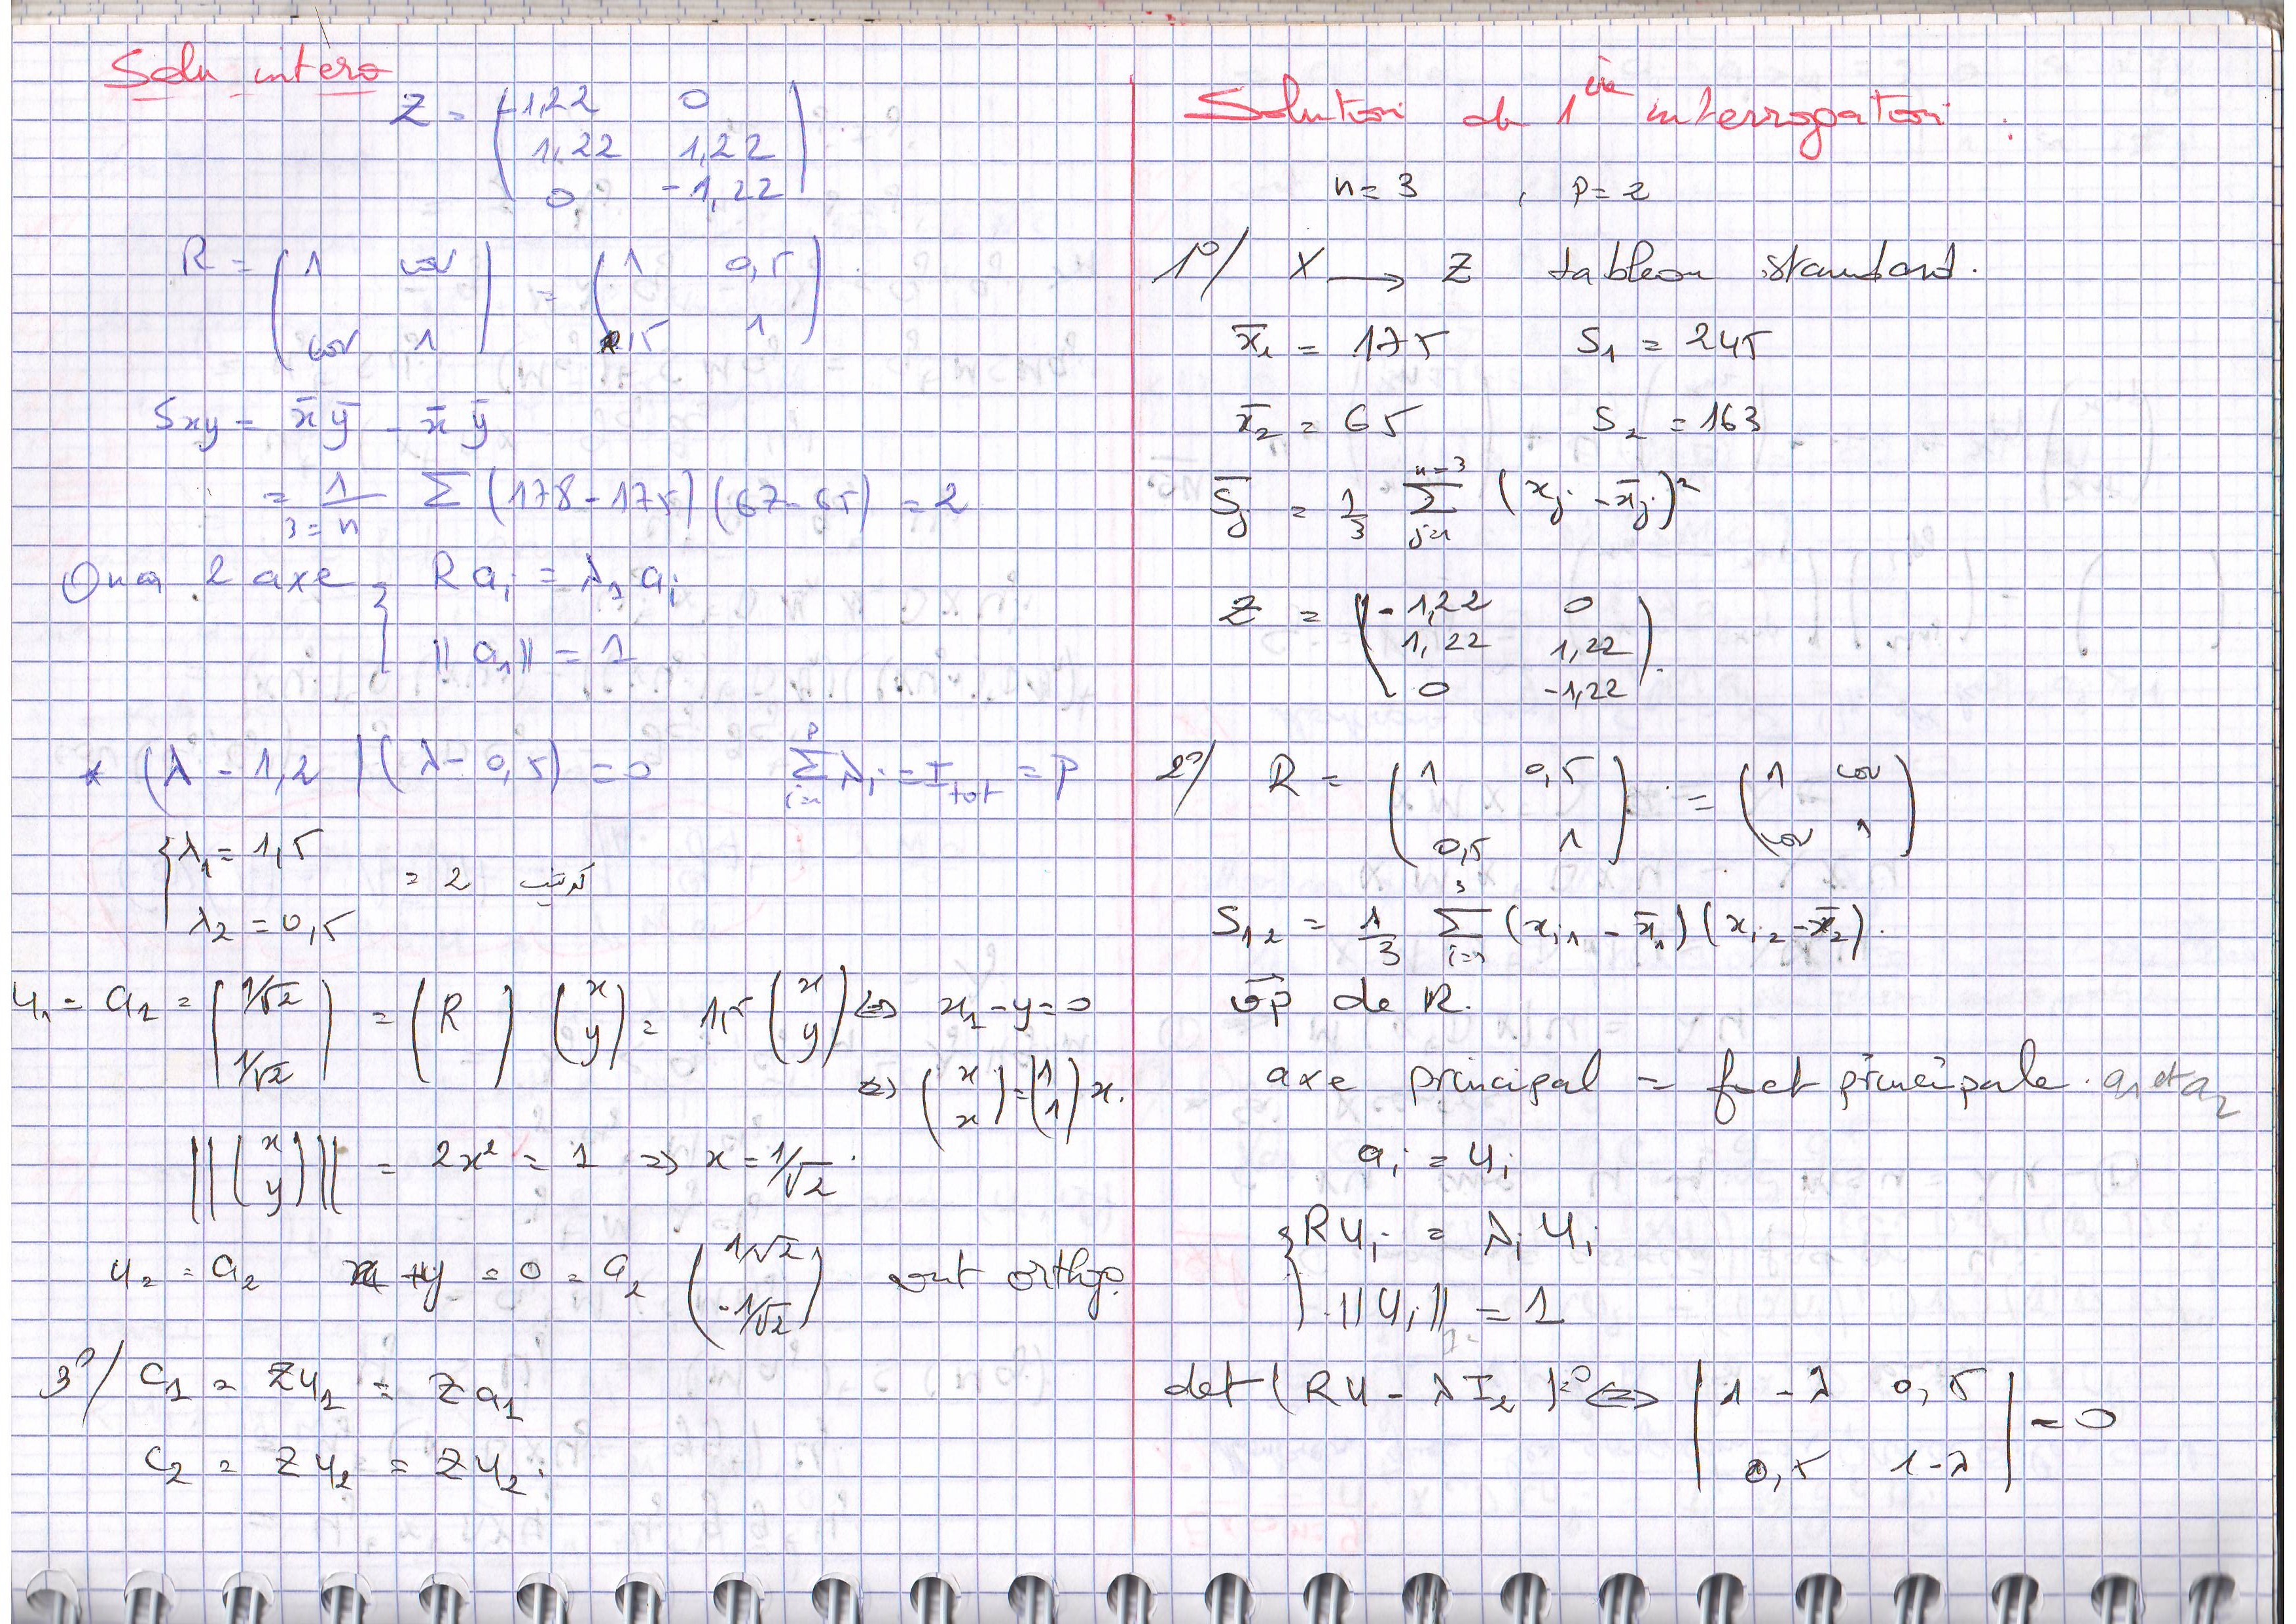 Solu intero
Z = ( -1,22 0
1,22 1,22
0 -1,22 )
R = ( 1 cov
cov 1 ) = ( 1 0,5
0,5 1 )
Sxy = x̄ȳ - x̄ ȳ
= 1/n Σ (178-175)(67-65) = 2
3=n
On a 2 axe { R ai = λ1 ai
||a1|| = 1
* (λ - 1,2)(λ - 0,5) = 0 Σ(i=1, p) λi = I tot = p
{ λ1 = 1,5
= 2
λ2 = 0,5
u1 = a2 = ( 1/√2
1/√2 ) = ( R ) ( x
y ) = 1,5 ( x
y ) ⇔ x1 - y = 0
⇔ ( x
x ) = ( 1
1 ) x.
|| ( x
y ) || = 2x² = 1 ⇒ x = 1/√2.
u2 = a2 x + y = 0 = a2 ( 1/√2
-1/√2 ) sont orthgo.
3°/ C1 = Zu1 = Za1
C2 = Zu2 = Zu2.
Solution de 1 interrogation :
n = 3 , p = 2
1°/ X → Z tableau standard.
x̄1 = 175 S1 = 245
x̄2 = 65 S2 = 163
S̄j = 1/3 Σ(j=1, n=3) (xj - x̄j)²
Z = ( -1,22 0
1,22 1,22
0 -1,22 ).
2°/ R = ( 1 0,5
0,5 1 ) = ( 1 cov
cov 1 )
S12 = 1/3 Σ(i=1, 3) (xi1 - x̄1)(xi2 - x̄2).
v⃗p de R.
axe principal = fact principale. a1 et a2
ai = ui
{ Rui = λi ui
||ui|| = 1
det (Ru - λI2) = 0 ⇔ | 1-λ 0,5
0,5 1-λ | = 0